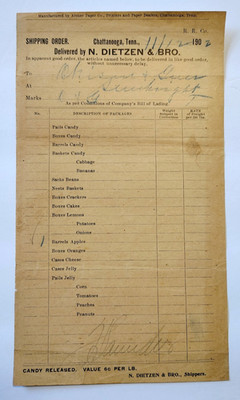 Manufactured by Archer Paper Co., Printers and Paper Dealers, Chattanooga, Tenn.
R. R. Co.
SHIPPING ORDER. Chattanooga, Tenn., 11/12 1902
Delivered by N. DIETZEN & BRO.
In apparent good order, the articles named below, to be delivered in like good order, without unnecessary delay.
To
At
Marks
As per Conditions of Company's Bill of Lading
No. DESCRIPTION OF PACKAGES. Weight Subject to Correction RATE Of Freight per 100 lbs
Pails Candy
Boxes Candy
Barrels Candy
Buckets Candy
Cabbage
Bananas
Sacks Beans
Nests Baskets
Boxes Crackers
Boxes Cakes
Boxes Lemons
Potatoes
Onions
1 Barrels Apples
Boxes Oranges
Cases Cheese
Cases Jelly
Pails Jelly
Corn
Tomatoes
Peaches
Peanuts
CANDY RELEASED. VALUE 6c PER LB.
N. DIETZEN & BRO., Shippers.